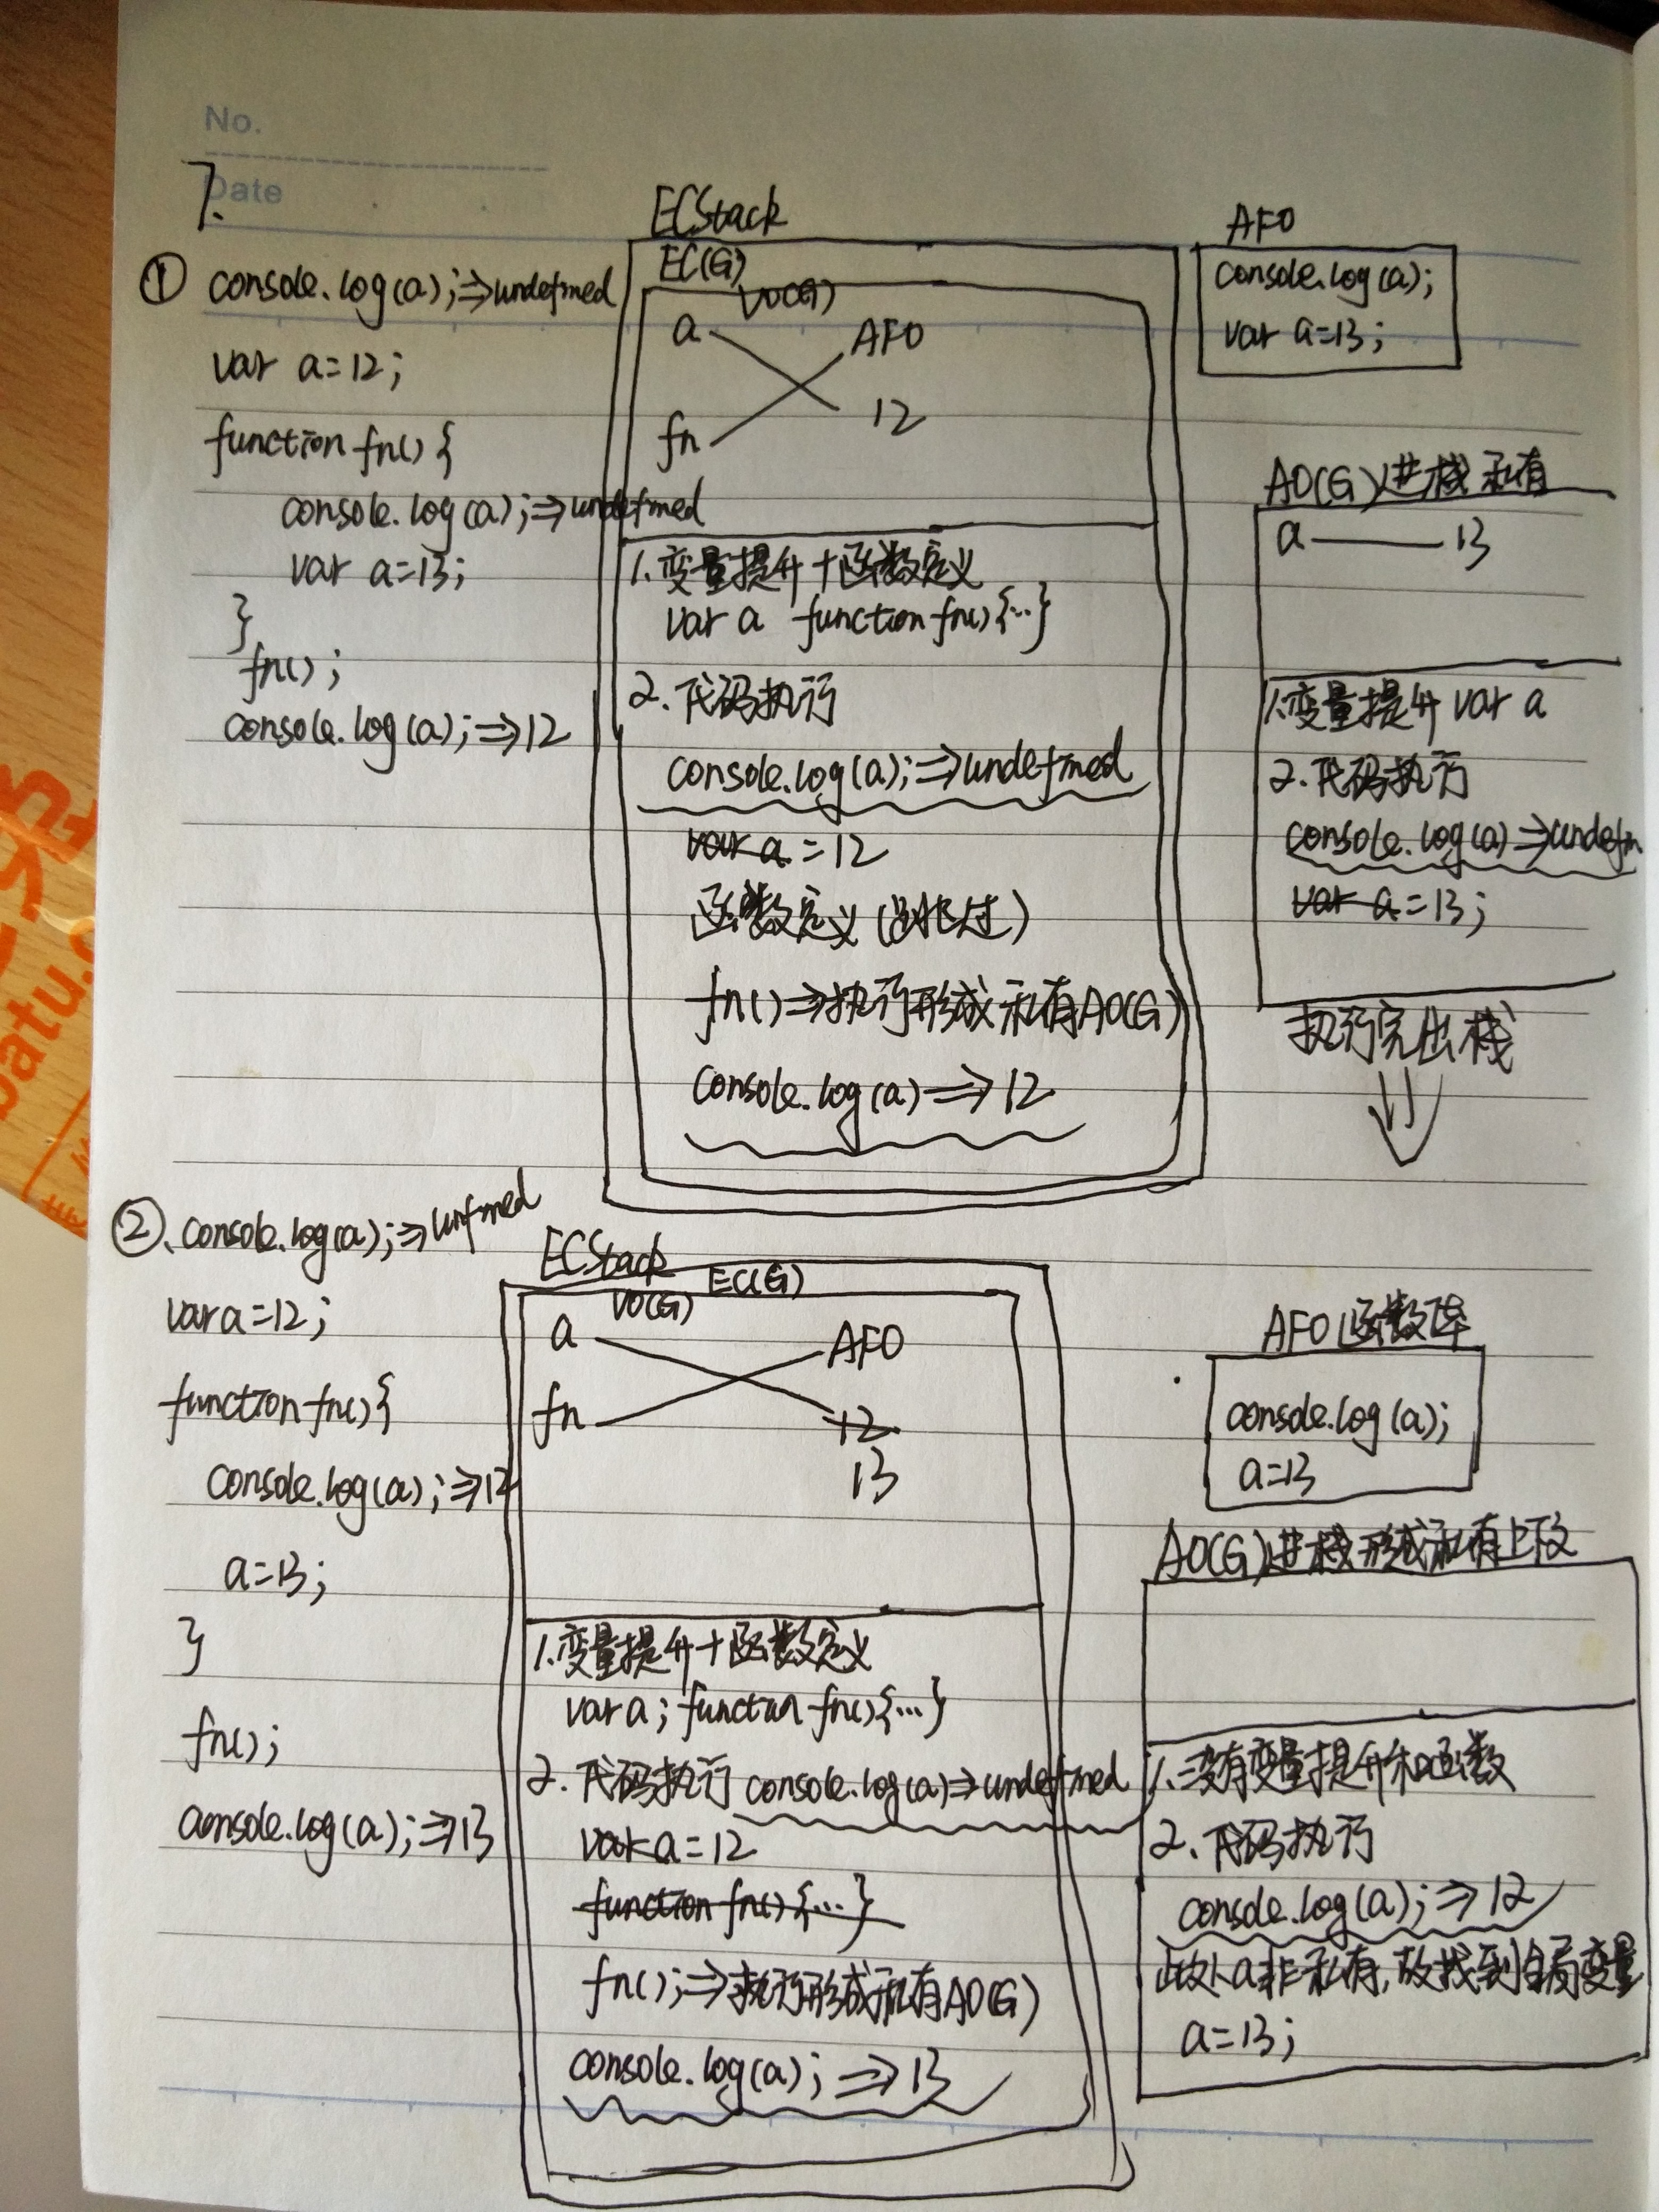 No.
Date
7.
① console.log(a);=>undefined
var a=12;
function fn(){
console.log(a);=>undefined
var a=13;
}
fn();
console.log(a);=>12
ECStack
EC(G)
VO(G)
a AFO
fn 12
1.变量提升+函数定义
var a function fn(){...}
2.代码执行
console.log(a);=>undefined
var a=12
函数定义(
fn()=>执行形成私有AO(G)
console.log(a)=>12
AFO
console.log(a);
var a=13;
AO(G)进栈 私有
a 13
1.变量提升 var a
2.代码执行
console.log(a)=>undefin
var a=13;
执行完出栈
②、console.log(a);=>unfined
var a=12;
function fn(){
console.log(a);=>12
a=13;
}
fn();
console.log(a);=>13
ECStack
EC(G)
VO(G)
a AFO
fn 12
13
1.变量提升+函数定义
var a; function fn(){...}
2.代码执行 console.log(a)=>undefined
var a=12
function fn(){...}
fn();=>执行形成私有AO(G)
console.log(a);=>13
AFO 函数体
console.log(a);
a=13
AO(G)进栈 形成私有上下文
1.没有变量提升和函数
2.代码执行
console.log(a);=>12
此处a非私有,故找到全局变量
a=13;